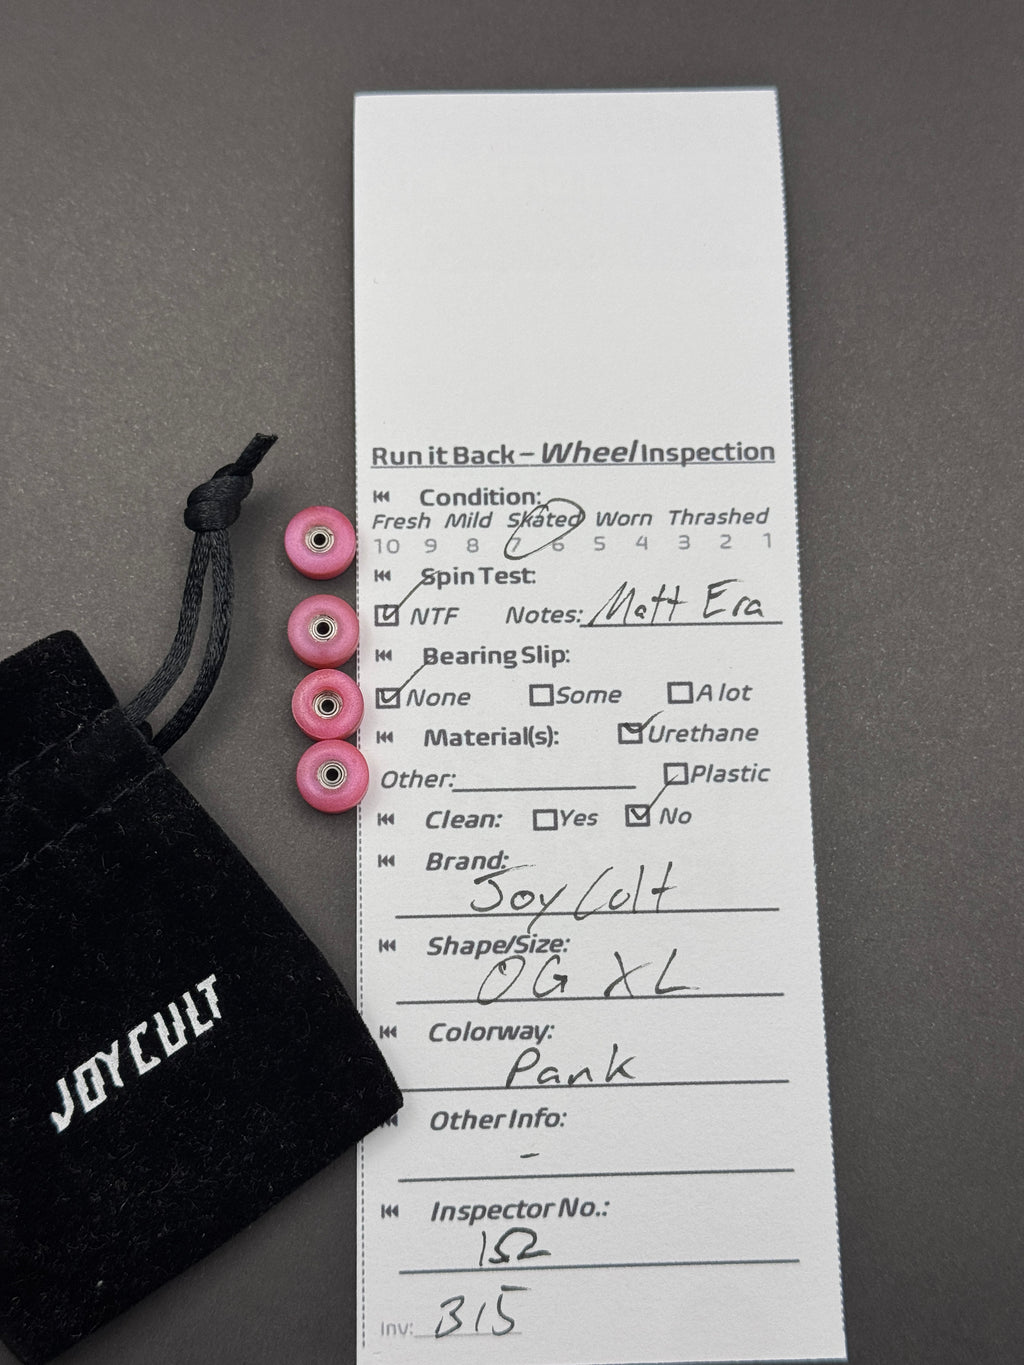 Run it Back – Wheel Inspection
Condition:
Fresh Mild Skated Worn Thrashed
10 9 8 7 6 5 4 3 2 1
Spin Test:
NTF Notes: Matt Era
Bearing Slip:
None Some A lot
Material(s): Urethane
Other: Plastic
Clean: Yes No
Brand:
Joy Cult
Shape/Size:
OG XL
Colorway:
Pank
Other Info:
-
Inspector No.:
1Ω
Inv: 315
JOYCULT